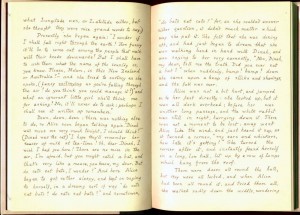 what longitude was, or latitude either, but
she thought they were nice grand words to say.)
Presently she began again: "I wonder if
I shall fall right through the earth! How funny
it'll be to come out among the people that walk
with their heads downwards! But I shall have
to ask them what the name of the country is,
you know. Please, Ma'am, is this New Zealand
or Australia?" - and she tried to curtsey as she
spoke, (fancy curtseying as you're falling through
the air! do you think you could manage it?) "and
what an ignorant little girl she'll think me
for asking! No, it'll never do to ask: perhaps I
shall see it written up somewhere."
Down, down, down: there was nothing else
to do, so Alice soon began talking again. "Dinah
will miss me very much tonight, I should think!"
(Dinah was the cat.) "I hope they'll remember her
saucer of milk at tea-time! Oh, dear Dinah, I
wish I had you here! There are no mice in the
air, I'm afraid, but you might catch a bat, and
that's very like a mouse, you know, my dear. But
do cats eat bats, I wonder?" And here Alice
began to get rather sleepy, and kept on saying
to herself, in a dreamy sort of way "do cats
eat bats? do cats eat bats?" and sometimes,
"do bats eat cats?" for, as she couldn't answer
either question, it didn't much matter which
way she put it. She felt that she was dozing
off, and had just begun to dream that she
was walking hand in hand with Dinah, and
was saying to her very earnestly, "Now, Dinah,
my dear, tell me the truth. Did you ever eat
a bat?" when suddenly, bump! bump! down
she came upon a heap of sticks and shavings,
and the fall was over.
Alice was not a bit hurt, and jumped
on to her feet directly: she looked up, but it
was all dark overhead; before her was
another long passage, and the white rabbit
was still in sight, hurrying down it. There
was not a moment to be lost: away went
Alice like the wind, and just heard it say, as
it turned a corner, "my ears and whiskers,
how late it's getting!" She turned the
corner after it, and instantly found herself
in a long, low hall, lit up by a row of lamps
which hung from the roof.
There were doors all round the hall,
but they were all locked, and when Alice
had been all round it, and tried them all,
she walked sadly down the middle, wondering